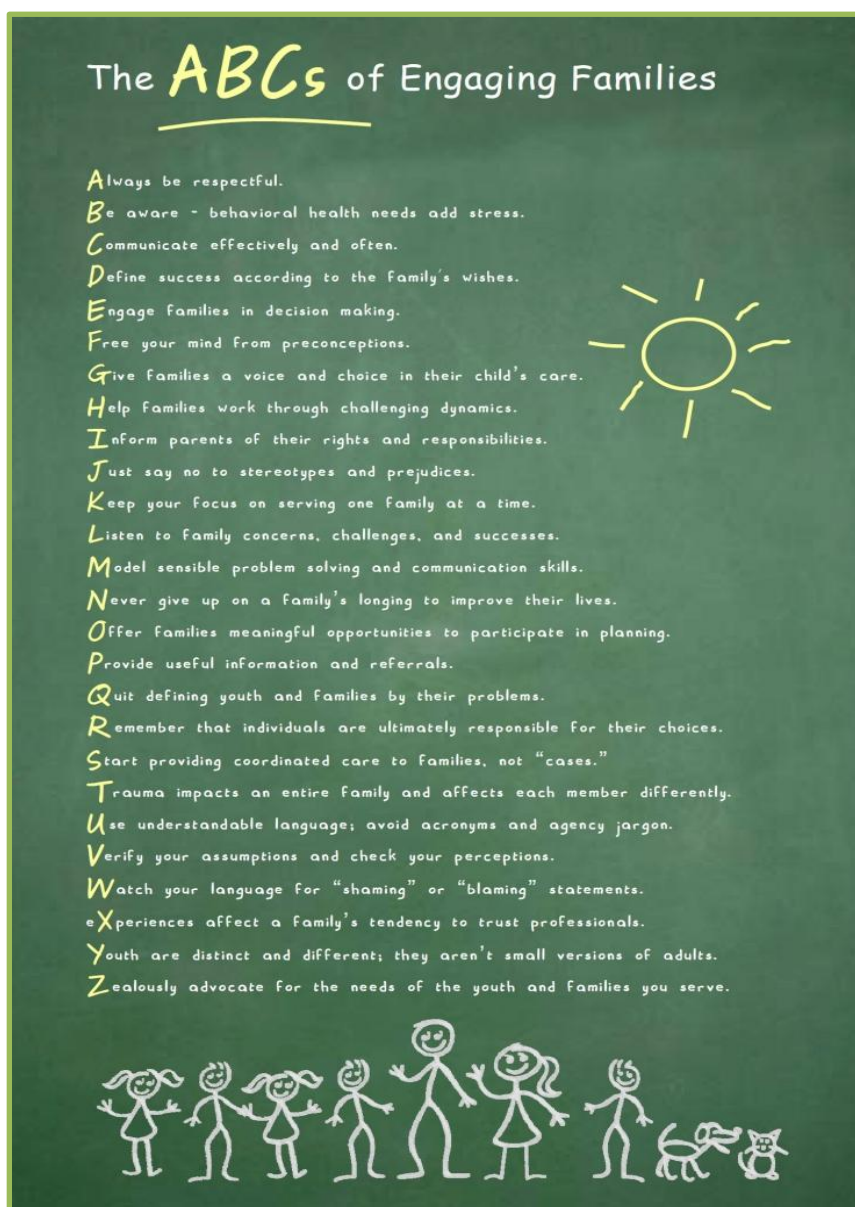 The ABCs of Engaging Families
Always be respectful.
Be aware - behavioral health needs add stress.
Communicate effectively and often.
Define success according to the family's wishes.
Engage families in decision making.
Free your mind from preconceptions.
Give families a voice and choice in their child's care.
Help families work through challenging dynamics.
Inform parents of their rights and responsibilities.
Just say no to stereotypes and prejudices.
Keep your focus on serving one family at a time.
Listen to family concerns, challenges, and successes.
Model sensible problem solving and communication skills.
Never give up on a family's longing to improve their lives.
Offer families meaningful opportunities to participate in planning.
Provide useful information and referrals.
Quit defining youth and families by their problems.
Remember that individuals are ultimately responsible for their choices.
Start providing coordinated care to families, not “cases.”
Trauma impacts an entire family and affects each member differently.
Use understandable language; avoid acronyms and agency jargon.
Verify your assumptions and check your perceptions.
Watch your language for “shaming” or “blaming” statements.
eXperiences affect a family's tendency to trust professionals.
Youth are distinct and different; they aren't small versions of adults.
Zealously advocate for the needs of the youth and families you serve.